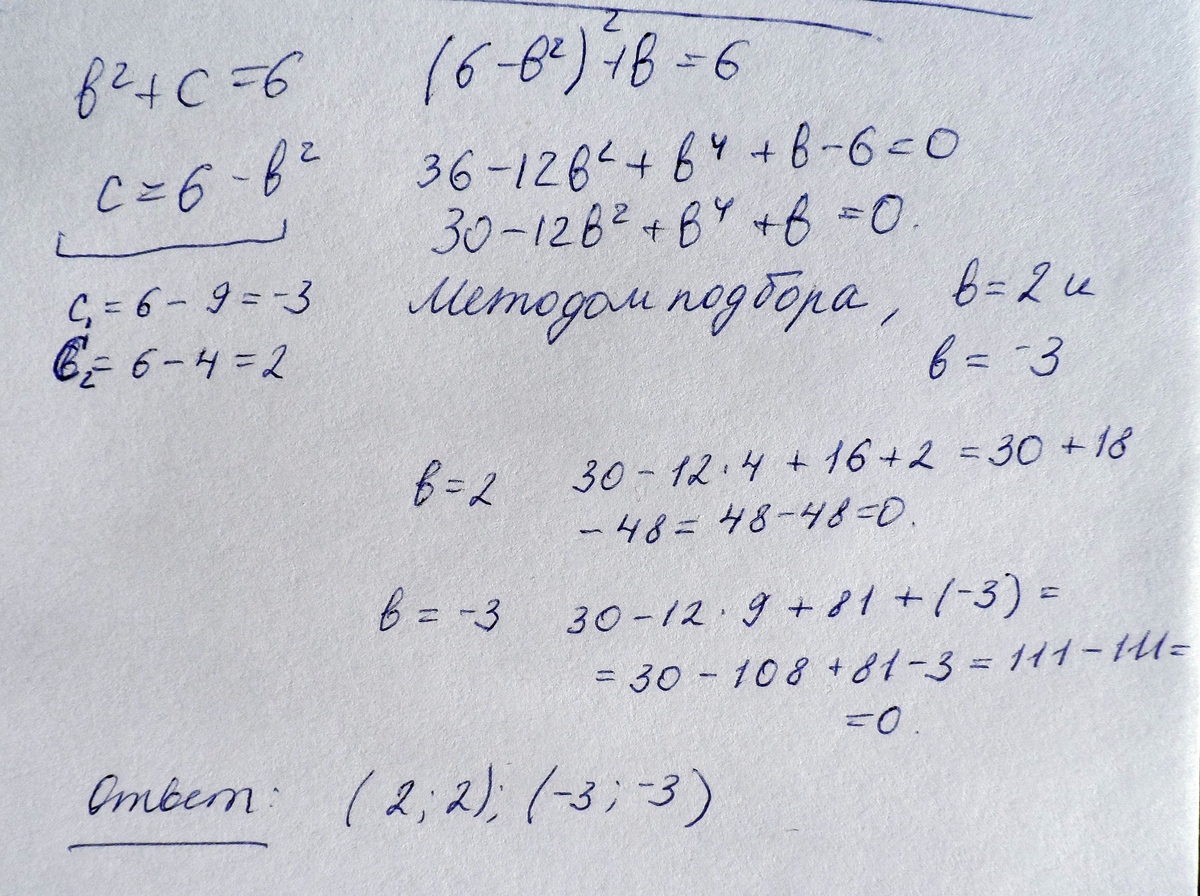 в² + с = 6
с = 6 - в²
с₁ = 6 - 9 = -3
с₂ = 6 - 4 = 2
(6 - в²)² + в = 6
36 - 12в² + в⁴ + в - 6 = 0
30 - 12в² + в⁴ + в = 0.
Методом подбора, в = 2 и
в = -3
в = 2 30 - 12 · 4 + 16 + 2 = 30 + 18
- 48 = 48 - 48 = 0.
в = -3 30 - 12 · 9 + 81 + (-3) =
= 30 - 108 + 81 - 3 = 111 - 111 =
= 0.
Ответ: (2; 2); (-3; -3)